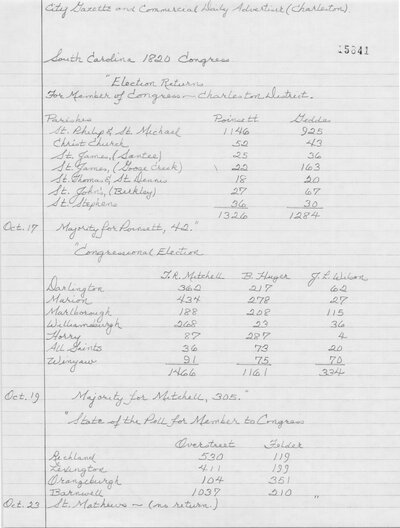 City Gazette and Commercial Daily Advertiser (Charleston).
15841
South Carolina 1820 Congress
"Election Returns
For Member of Congress — Charleston District.
Parishes Poinsett Geddes
St. Philip & St. Michael 1146 925
Christ Church 52 43
St. James, (Santee) 25 36
St. James, (Goose Creek) 22 163
St. Thomas & St. Dennis 18 20
St. John's, (Berkley) 27 67
St. Stephens 36 30
1326 1284
Oct. 17 Majority for Poinsett, 42."
"Congressional Election
T.R. Mitchell B. Huger J.L. Wilson
Darlington 362 217 62
Marion 434 278 27
Marlborough 188 208 115
Williamsburgh 268 23 36
Horry 87 287 4
All Saints 36 73 20
Winyaw 91 75 70
1466 1161 334
Oct. 19 Majority for Mitchell, 305."
"State of the Poll for Member to Congress
Overstreet Felder
Richland 530 119
Lexington 411 199
Orangeburgh 104 351
Barnwell 1037 210
Oct. 23 St. Mathews — (no return.) "